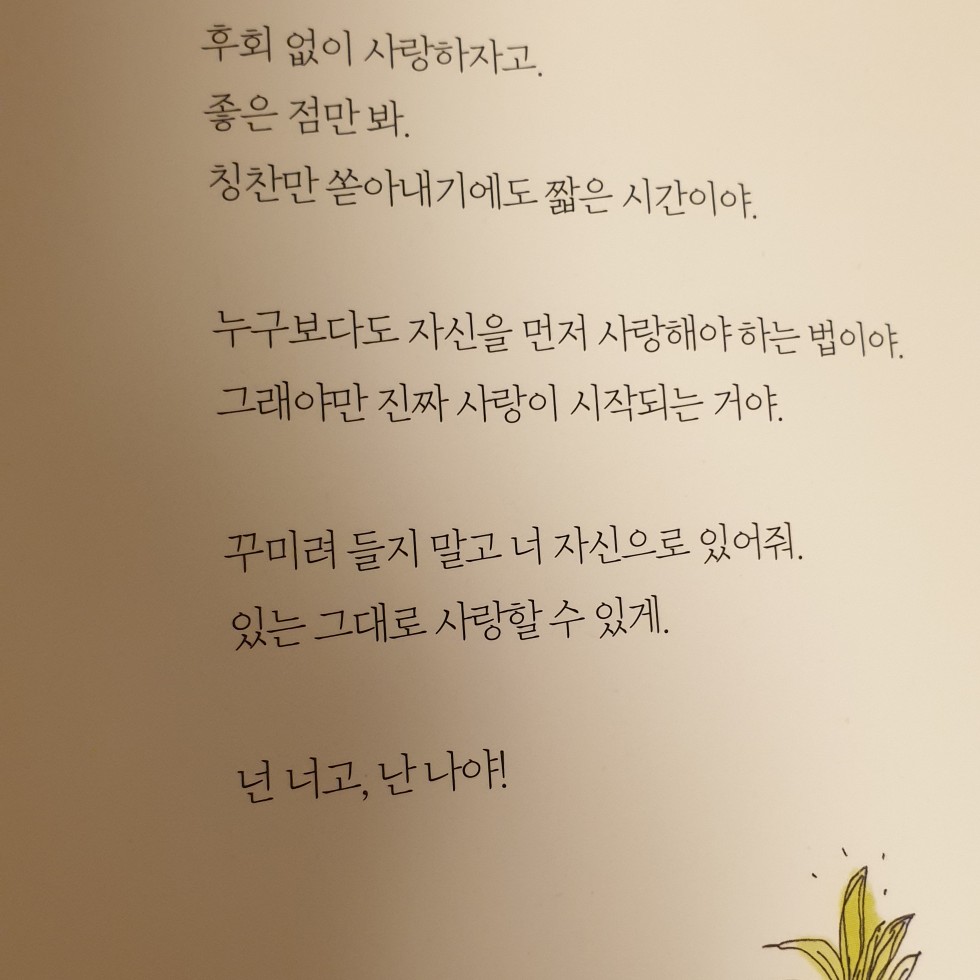 후회 없이 사랑하자고.
좋은 점만 봐.
칭찬만 쏟아내기에도 짧은 시간이야.
누구보다도 자신을 먼저 사랑해야 하는 법이야.
그래야만 진짜 사랑이 시작되는 거야.
꾸미려 들지 말고 너 자신으로 있어줘.
있는 그대로 사랑할 수 있게.
넌 너고, 난 나야!